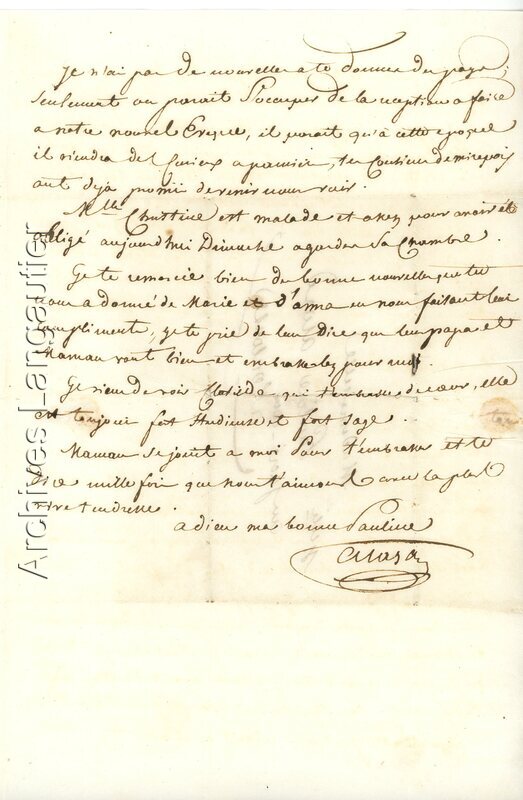 je n'ai pas de nouvelles a te donner du pays,
seulement on parait s'occuper de la reception a faire
a notre nouvel Eveque, il parait qu'a cette epoque
il viendra des Curieux a pamiers, les Cousins de mirepoix
ont deja promi de venir nous voir.
Mlle Christine est malade et assez pour avoir été
obligé aujourd'hui Dimanche a garder sa Chambre.
Je te remercie bien de bonne nouvelles que tu
nous a donné de Marie et d'anna en nous faisant leur
compliments, je te prie de leur dire que leur papa et
Maman vont bien et embrasse les pour moi.
Je viens de voir qui t'embrasse de coeur, elle
est toujour fort studieuse et fort sage.
Maman se joint a moi pour t'embrasser et te
dire mille fois que nous t'aimons avec la plus
vive tendresse.
adieu ma bonne Pauline
Archives Langautier